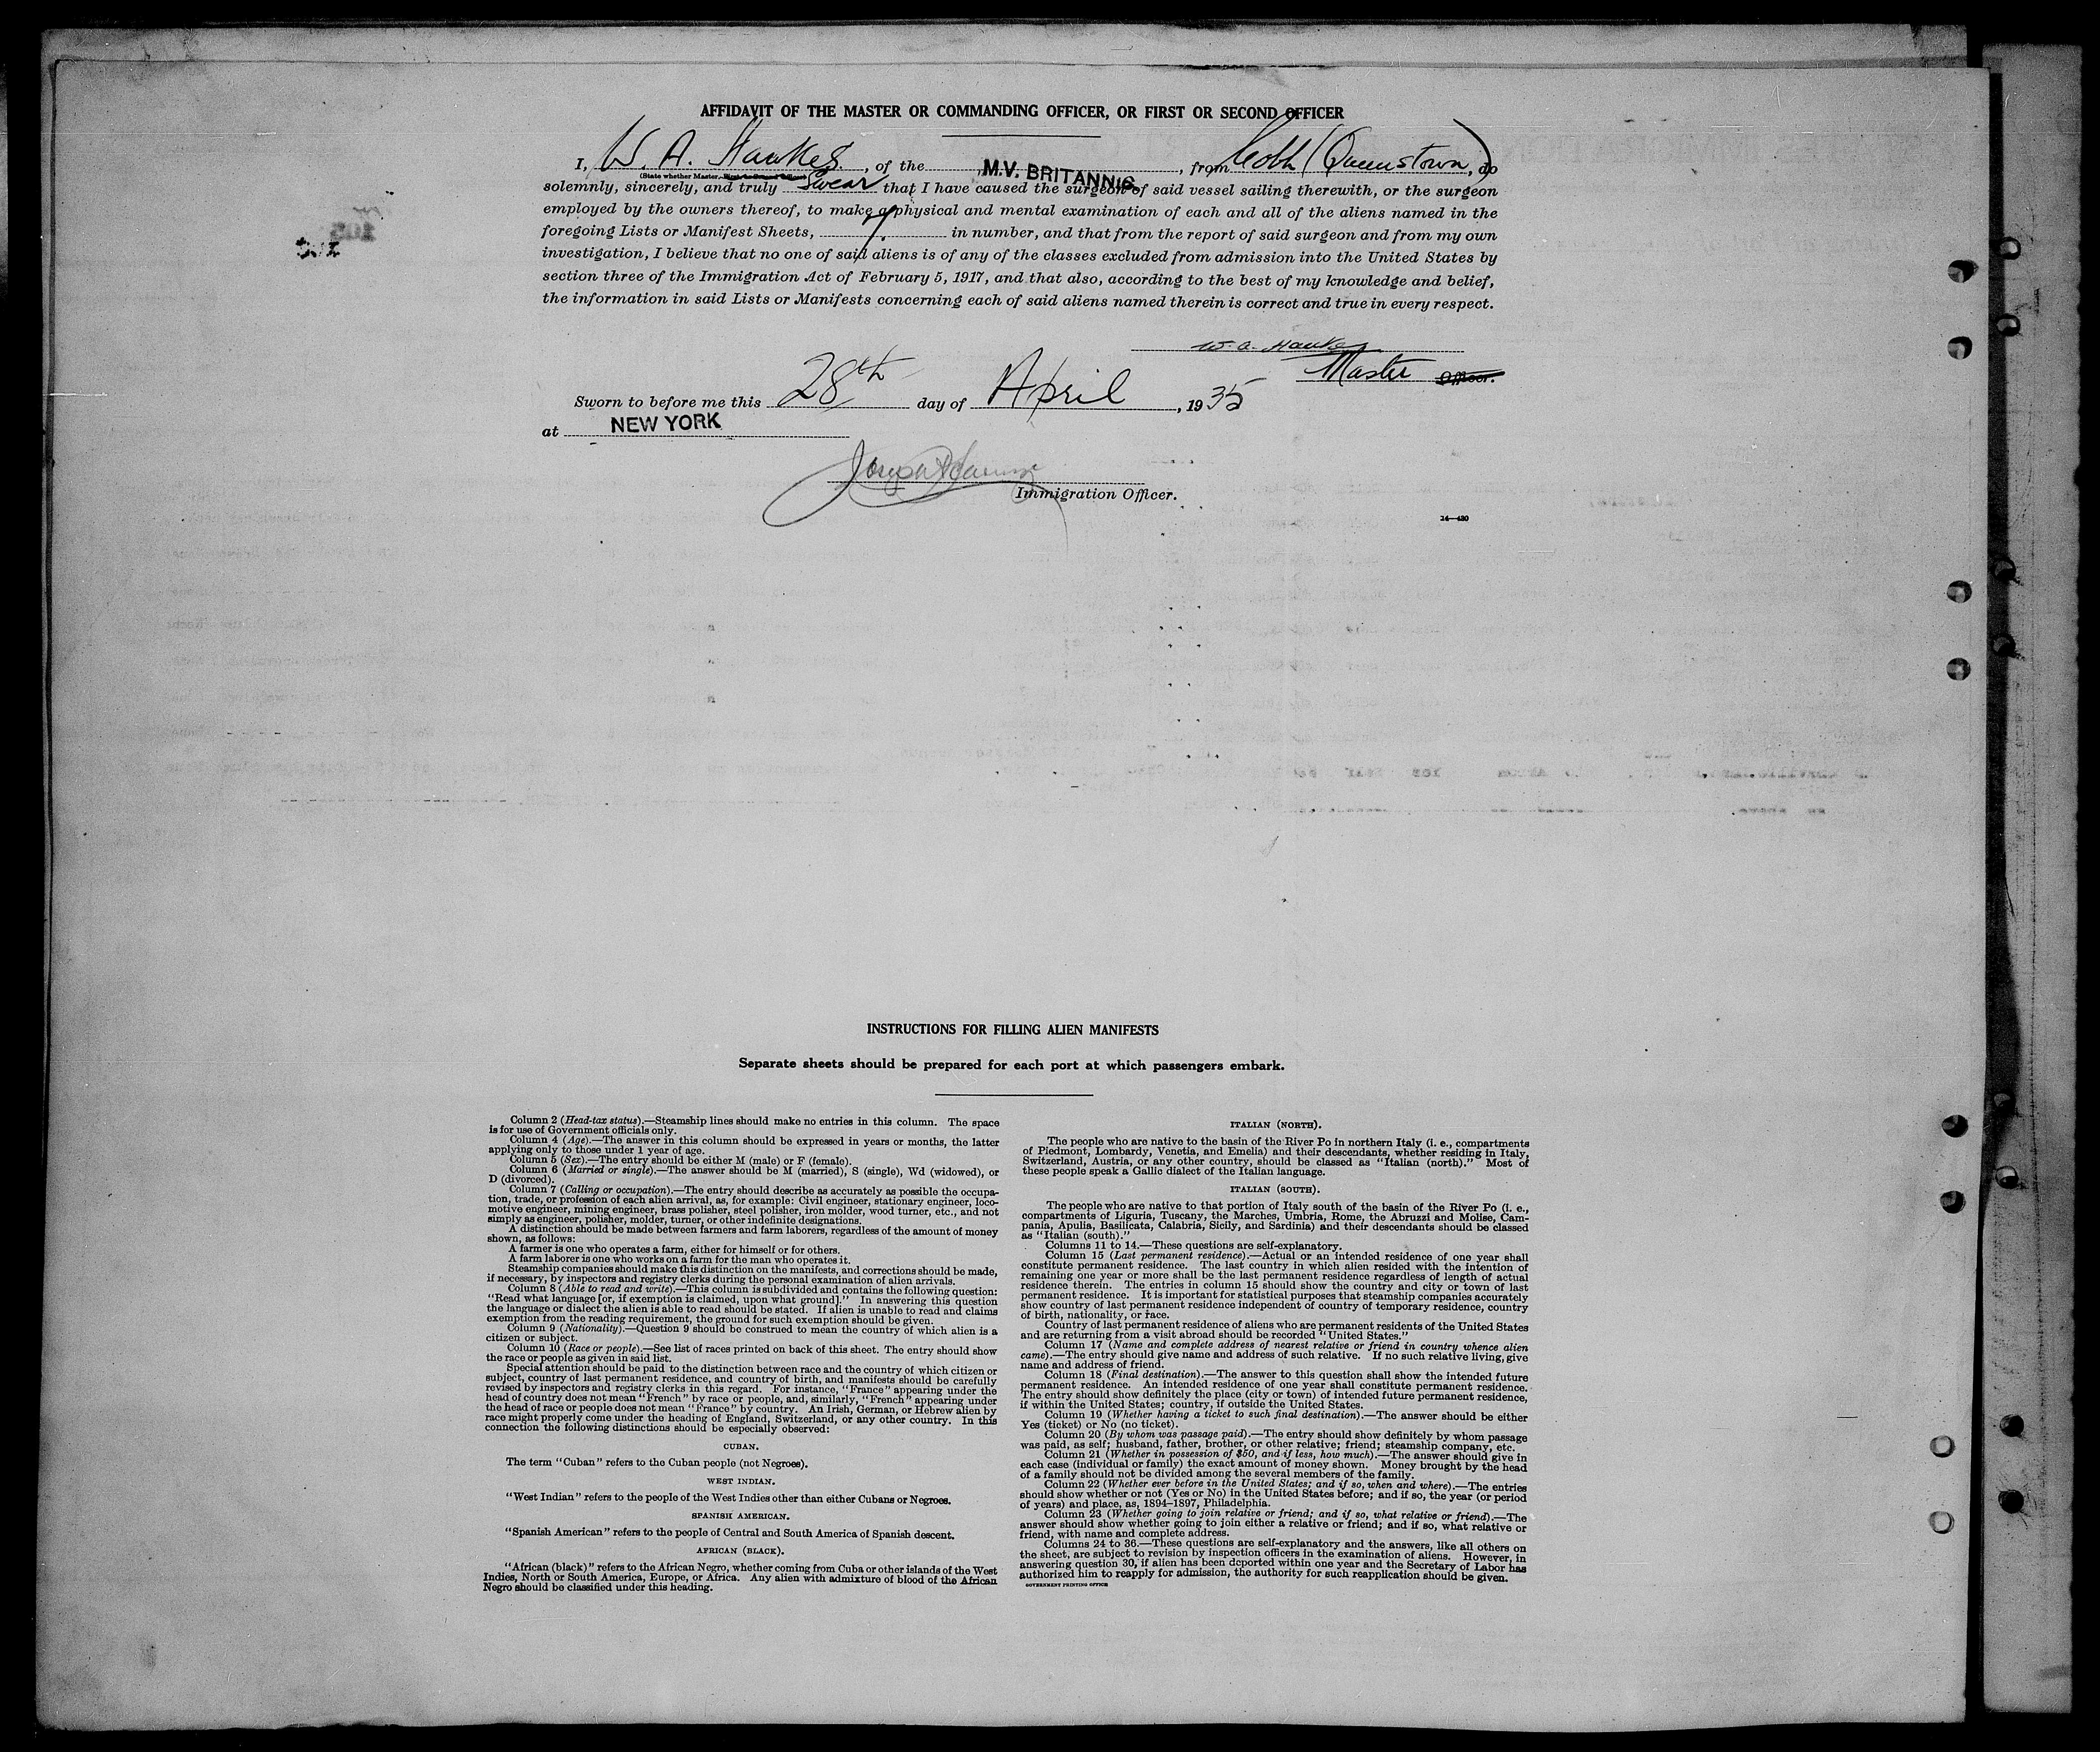 AFFIDAVIT OF THE MASTER OR COMMANDING OFFICER, OR FIRST OR SECOND OFFICER
I, W. A. Hawkes, of the M.V. BRITANNIC, from Cobh (Queenstown), do
(State whether Master,
solemnly, sincerely, and truly Swear that I have caused the surgeon of said vessel sailing therewith, or the surgeon
employed by the owners thereof, to make a physical and mental examination of each and all of the aliens named in the
foregoing Lists or Manifest Sheets, 7. in number, and that from the report of said surgeon and from my own
investigation, I believe that no one of said aliens is of any of the classes excluded from admission into the United States by
section three of the Immigration Act of February 5, 1917, and that also, according to the best of my knowledge and belief,
the information in said Lists or Manifests concerning each of said aliens named therein is correct and true in every respect.
W. A. Hawkes
Master Officer.
Sworn to before me this 28th day of April, 1935
at NEW YORK
Immigration Officer.
14—420
INSTRUCTIONS FOR FILLING ALIEN MANIFESTS
Separate sheets should be prepared for each port at which passengers embark.
Column 2 (Head-tax status).—Steamship lines should make no entries in this column. The space
is for use of Government officials only.
Column 4 (Age).—The answer in this column should be expressed in years or months, the latter
applying only to those under 1 year of age.
Column 5 (Sex).—The entry should be either M (male) or F (female).
Column 6 (Married or single).—The answer should be M (married), S (single), Wd (widowed), or
D (divorced).
Column 7 (Calling or occupation).—The entry should describe as accurately as possible the occupa-
tion, trade, or profession of each alien arrival, as, for example: Civil engineer, stationary engineer, loco-
motive engineer, mining engineer, brass polisher, steel polisher, iron molder, wood turner, etc., and not
simply as engineer, polisher, molder, turner, or other indefinite designations.
A distinction should be made between farmers and farm laborers, regardless of the amount of money
shown, as follows:
A farmer is one who operates a farm, either for himself or for others.
A farm laborer is one who works on a farm for the man who operates it.
Steamship companies should make this distinction on the manifests, and corrections should be made,
if necessary, by inspectors and registry clerks during the personal examination of alien arrivals.
Column 8 (Able to read and write).—This column is subdivided and contains the following question:
"Read what language [or, if exemption is claimed, upon what ground]." In answering this question
the language or dialect the alien is able to read should be stated. If alien is unable to read and claims
exemption from the reading requirement, the ground for such exemption should be given.
Column 9 (Nationality).—Question 9 should be construed to mean the country of which alien is a
citizen or subject.
Column 10 (Race or people).—See list of races printed on back of this sheet. The entry should show
the race or people as given in said list.
Special attention should be paid to the distinction between race and the country of which citizen or
subject, country of last permanent residence, and country of birth, and manifests should be carefully
revised by inspectors and registry clerks in this regard. For instance, "France" appearing under the
head of country does not mean "French" by race or people, and, similarly, "French" appearing under
the head of race or people does not mean "France" by country. An Irish, German, or Hebrew alien by
race might properly come under the heading of England, Switzerland, or any other country. In this
connection the following distinctions should be especially observed:
CUBAN.
The term "Cuban" refers to the Cuban people (not Negroes).
WEST INDIAN.
"West Indian" refers to the people of the West Indies other than either Cubans or Negroes.
SPANISH AMERICAN.
"Spanish American" refers to the people of Central and South America of Spanish descent.
AFRICAN (BLACK).
"African (black)" refers to the African Negro, whether coming from Cuba or other islands of the West
Indies, North or South America, Europe, or Africa. Any alien with admixture of blood of the African
Negro should be classified under this heading.
ITALIAN (NORTH).
The people who are native to the basin of the River Po in northern Italy (i. e., compartments
of Piedmont, Lombardy, Venetia, and Emelia) and their descendants, whether residing in Italy,
Switzerland, Austria, or any other country, should be classed as "Italian (north)." Most of
these people speak a Gallic dialect of the Italian language.
ITALIAN (SOUTH).
The people who are native to that portion of Italy south of the basin of the River Po (i. e.,
compartments of Liguria, Tuscany, the Marches, Umbria, Rome, the Abruzzi and Molise, Cam-
pania, Apulia, Basilicata, Calabria, Sicily, and Sardinia) and their descendants should be classed
as "Italian (south)."
Columns 11 to 14.—These questions are self-explanatory.
Column 15 (Last permanent residence).—Actual or an intended residence of one year shall
constitute permanent residence. The last country in which alien resided with the intention of
remaining one year or more shall be the last permanent residence regardless of length of actual
residence therein. The entries in column 15 should show the country and city or town of last
permanent residence. It is important for statistical purposes that steamship companies accurately
show country of last permanent residence independent of country of temporary residence, country
of birth, nationality, or race.
Country of last permanent residence of aliens who are permanent residents of the United States
and are returning from a visit abroad should be recorded "United States."
Column 17 (Name and complete address of nearest relative or friend in country whence alien
came).—The entry should give name and address of such relative. If no such relative living, give
name and address of friend.
Column 18 (Final destination).—The answer to this question shall show the intended future
permanent residence. An intended residence of one year shall constitute permanent residence.
The entry should show definitely the place (city or town) of intended future permanent residence,
if within the United States; country, if outside the United States.
Column 19 (Whether having a ticket to such final destination).—The answer should be either
Yes (ticket) or No (no ticket).
Column 20 (By whom was passage paid).—The entry should show definitely by whom passage
was paid, as self; husband, father, brother, or other relative; friend; steamship company, etc.
Column 21 (Whether in possession of $50, and if less, how much).—The answer should give in
each case (individual or family) the exact amount of money shown. Money brought by the head
of a family should not be divided among the several members of the family.
Column 22 (Whether ever before in the United States; and if so, when and where).—The entries
should show whether or not (Yes or No) in the United States before; and if so, the year (or period
of years) and place, as, 1894–1897, Philadelphia.
Column 23 (Whether going to join relative or friend; and if so, what relative or friend).—The
answer should show whether going to join either a relative or friend; and if so, what relative or
friend, with name and complete address.
Columns 24 to 36.—These questions are self-explanatory and the answers, like all others on
the sheet, are subject to revision by inspection officers in the examination of aliens. However, in
answering question 30, if alien has been deported within one year and the Secretary of Labor has
authorized him to reapply for admission, the authority for such reapplication should be given.
GOVERNMENT PRINTING OFFICE